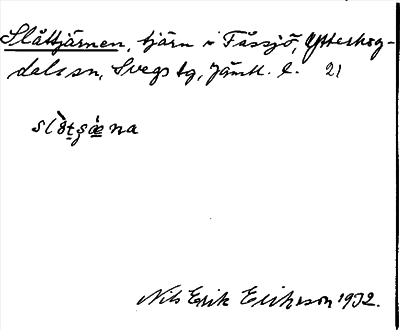 Slåttjärnen, tjärn i Fåssjö, Ytterhog-
dals sn, Svegs tg, Jämtl. l. 21
Nils Erik Eliasson 1932.